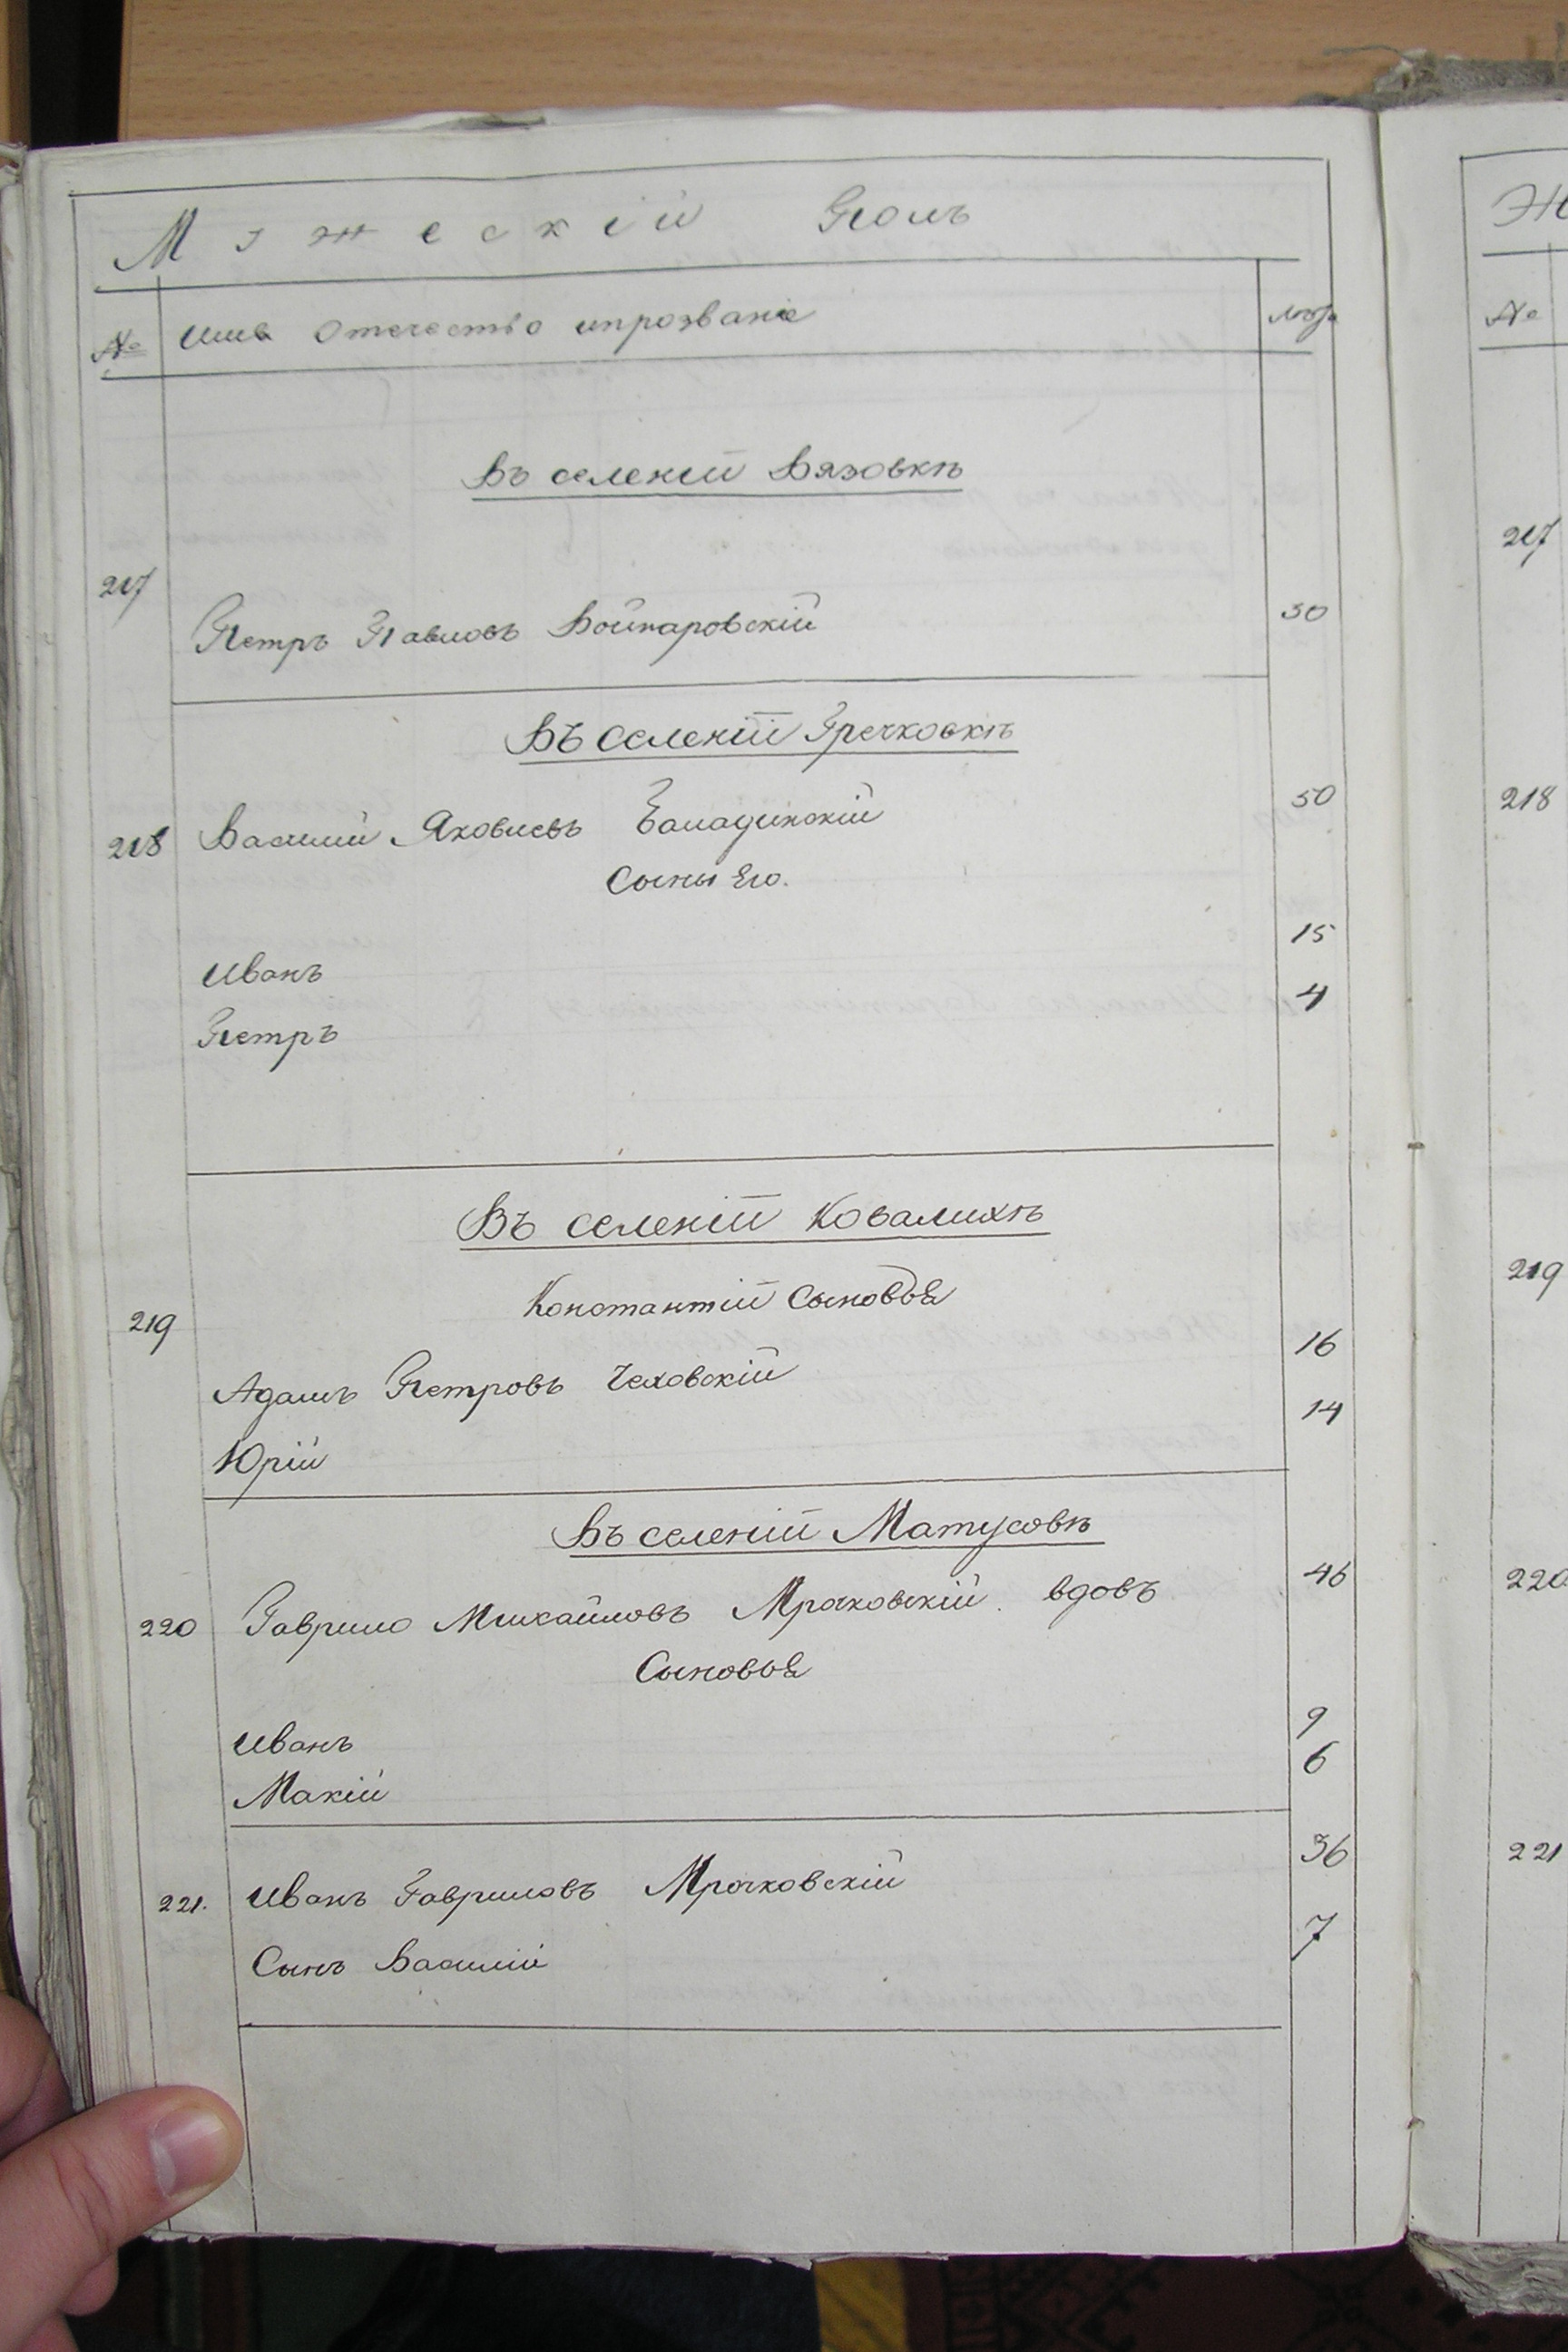 Мужескій Полъ
№ Имя Отечество ипрозваніе лѣта
Въ селеніи Вязовкѣ
217
Петръ Павловъ Войнаровскій 50
Въ селеніи Гречковкѣ
218 Василій Яковлевъ 50
Сыны Его.
Иванъ 15
Петръ 4
Въ селеніи Ковалихѣ
Константій Сыновья
219
Адамъ Петровъ Чеховскій 16
Юрій 14
Въ селеніи Матусовѣ
220 Гаврило Михайловъ Мрочковскій. вдовъ 46
Сыновья
Иванъ 9
Макій 6
221. Иванъ Гавриловъ Мрочковскій 36
Сынъ Василій 7
Же
№
217
218
219
220
221